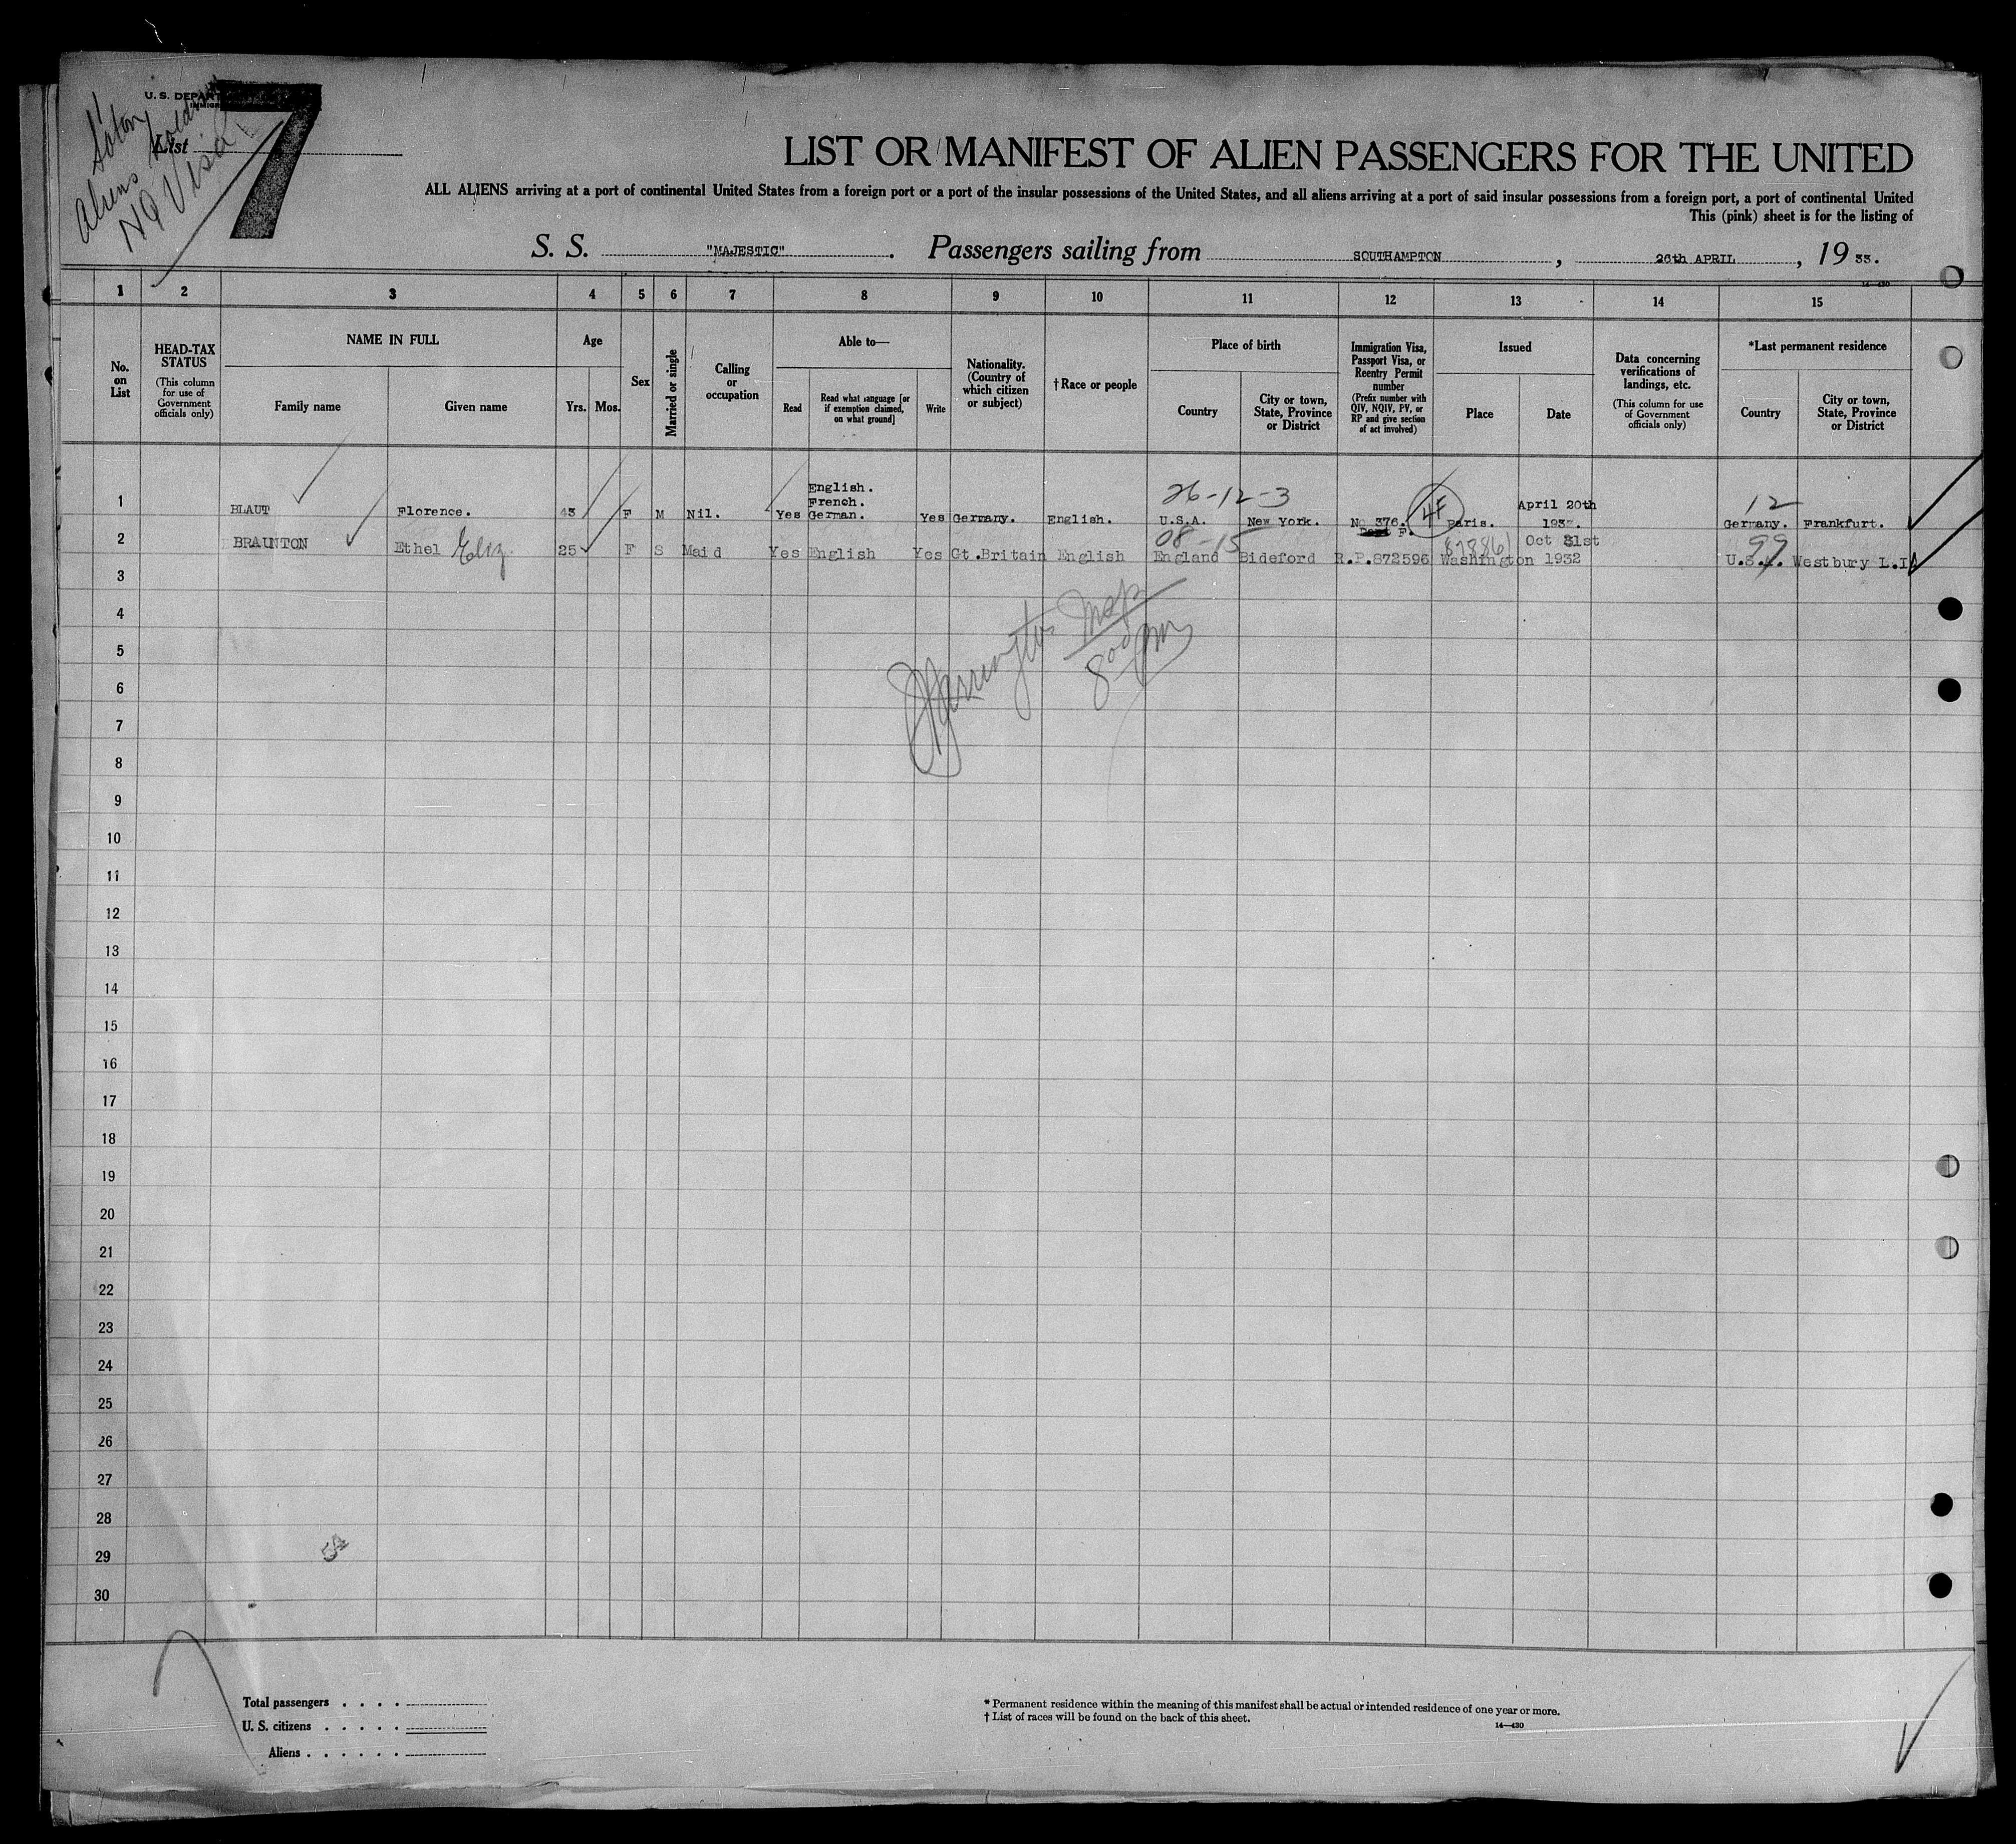 U. S. DEPAR
7
List
Aliens
NQ Visa
LIST OR MANIFEST OF ALIEN PASSENGERS FOR THE UNITED
ALL ALIENS arriving at a port of continental United States from a foreign port or a port of the insular possessions of the United States, and all aliens arriving at a port of said insular possessions from a foreign port, a port of continental United
This (pink) sheet is for the listing of
S. S. "MAJESTIC". Passengers sailing from SOUTHAMPTON, 26th APRIL, 1933.
14-430
1 2 3 4 5 6 7 8 9 10 11 12 13 14 15
No. on List
HEAD-TAX STATUS (This column for use of Government officials only)
NAME IN FULL
Family name Given name
Age
Yrs. Mos.
Sex
Married or single
Calling or occupation
Able to—
Read Read what language [or if exemption claimed, on what ground] Write
Nationality. (Country of which citizen or subject)
†Race or people
Place of birth
Country City or town, State, Province or District
Immigration Visa, Passport Visa, or Reentry Permit number (Prefix number with QIV, NQIV, PV, or RP and give section of act involved)
Issued
Place Date
Data concerning verifications of landings, etc. (This column for use of Government officials only)
*Last permanent residence
Country City or town, State, Province or District
26-12-3 12
1 BLAUT Florence. 43 F M Nil. Yes English. French. German. Yes Germany. English. U.S.A. New York. No 376. F. 4F Paris. April 20th 193 Germany. Frankfurt.
08-15 99
2 BRAUNTON Ethel Eliz. 25 F S Maid Yes English Yes Gt.Britain English England Bideford R.P.872596 Washington Oct 31st 1932 U.S.A. Westbury L.I
3
4
5
6
7
8
9
10
11
12
13
14
15
16
17
18
19
20
21
22
23
24
25
26
27
28
29
30
Total passengers . . . .
U. S. citizens . . . . .
Aliens . . . . . .
* Permanent residence within the meaning of this manifest shall be actual or intended residence of one year or more.
† List of races will be found on the back of this sheet.
14—430